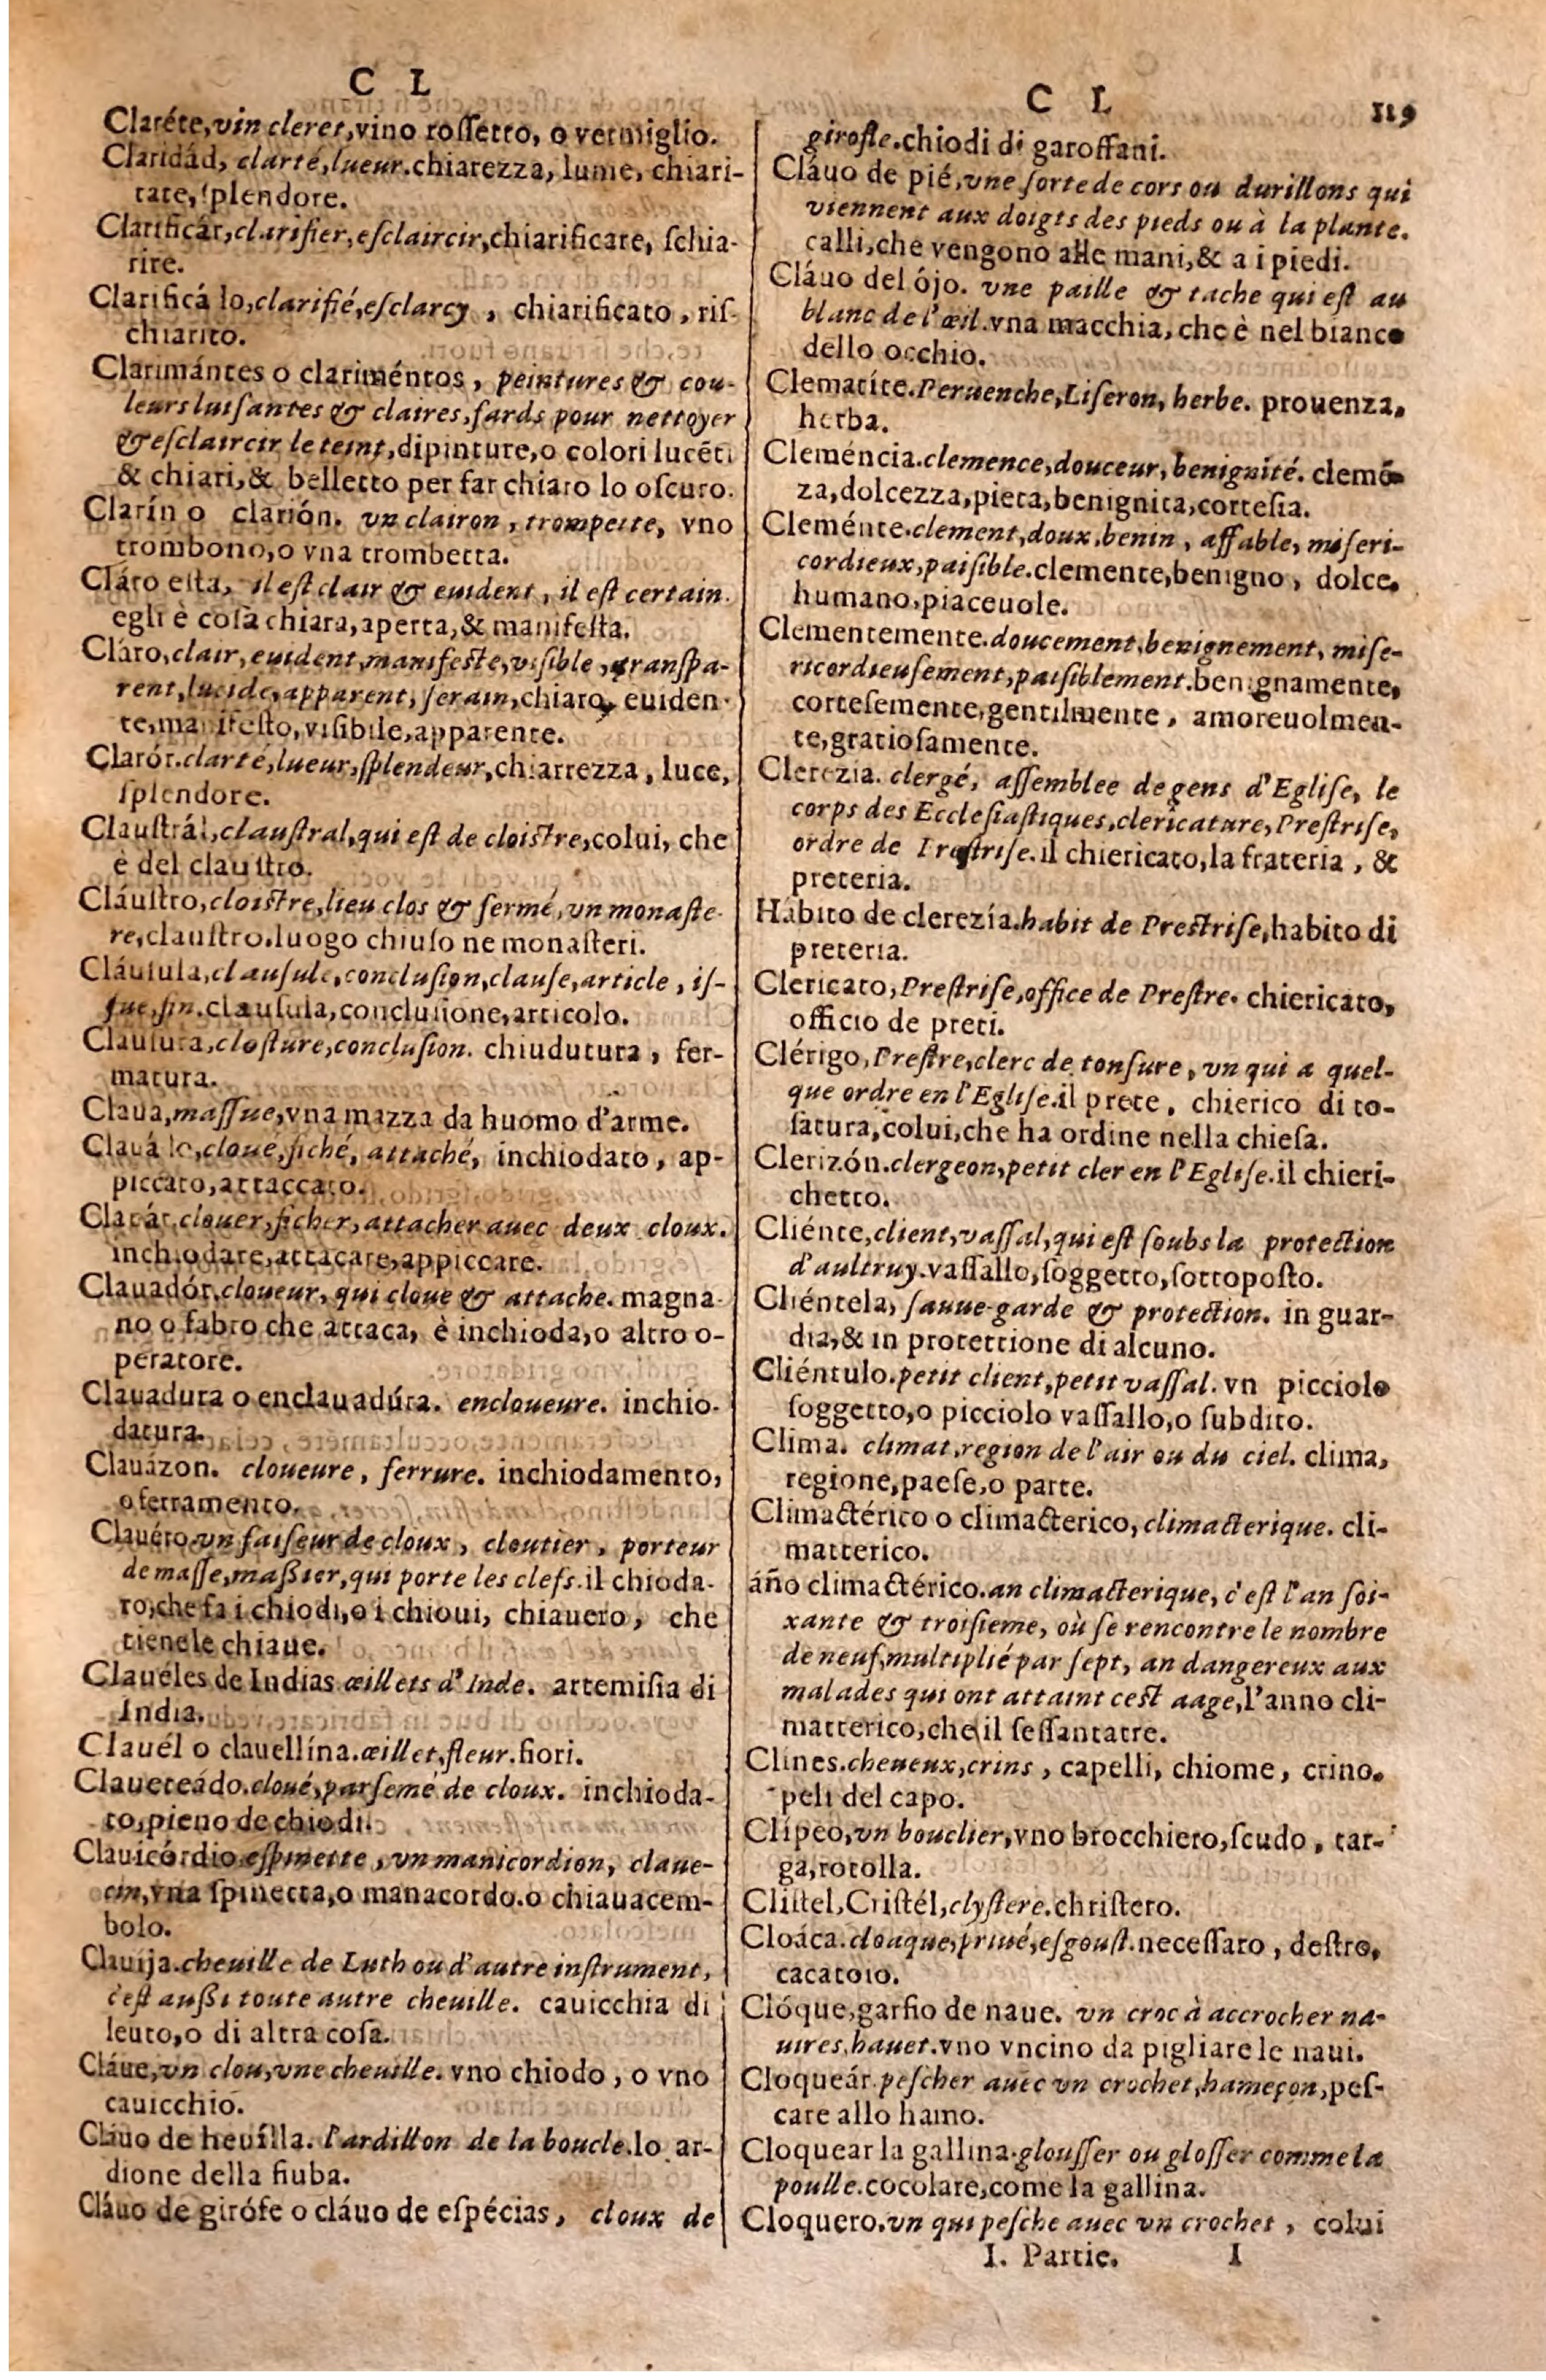 C L
Claréte, vin cleret, vino rossetto, o vermiglio.
Claridád, clarté, lueur. chiarezza, lume, chiari-
tate, splendore.
Clarificár, clarifier, esclaircir, chiarificare, schia-
rire.
Clarificá lo, clarifié, esclarcy, chiarificato, ris-
chiarito.
Clarimántes o clariméntos, peintures & cou-
leurs luisantes & claires, fards pour nettoyer
& esclaircir le teint, dipinture, o colori lucēti
& chiari, & belletto per far chiaro lo oscuro.
Clarín o clarión. vn clairon, trompette, vno
trombono, o vna trombetta.
Cláro esta, il est clair & euident, il est certain.
egli è cosa chiara, aperta, & manifesta.
Cláro, clair, euident, manifeste, visible, transpa-
rent, lucide, apparent, serain, chiaro, euiden-
te, manifesto, visibile, apparente.
Clarór. clarté, lueur, splendeur, chiarrezza, luce,
splendore.
Claustrál, claustral, qui est de cloistre, colui, che
è del claustro.
Cláustro, cloistre, lieu clos & fermé, vn monaste-
re, claustro. luogo chiuso ne monasteri.
Cláusula, clausule, conclusion, clause, article, is-
sue, fin. clausula, conclusione, articolo.
Clausura, closture, conclusion. chiudutura, fer-
matura.
Claua, massue, vna mazza da huomo d'arme.
Clauá lo, cloué, fiché, attaché, inchiodato, ap-
piccato, attaccato.
Clauár, clouer, ficher, attacher auec deux cloux.
inchiodare, attacare, appiccare.
Clauadór. cloueur, qui cloue & attache. magna-
no o fabro che attaca, è inchioda, o altro o-
peratore.
Clauadura o enclauadúra. encloueure. inchio-
datura.
Clauázon. cloueure, ferrure. inchiodamento,
o ferramento.
Clauéro. vn faiseur de cloux, cloutier, porteur
de masse, massier, qui porte les clefs. il chioda-
ro, che fa i chiodi, o i chioui, chiauero, che
tiene le chiaue.
Clauéles de Indias œillets d'Inde. artemisia di
India.
Clauél o clauellína. œillet, fleur. fiori.
Claueteádo. cloué, parsemé de cloux. inchioda-
to, pieno de chiodi.
Clauicórdio espinette, vn manicordion, claue-
cin, vna spinetta, o manacordo. o chiauacem-
bolo.
Clauija. cheuille de Luth ou d'autre instrument,
c'est aussi toute autre cheuille. cauicchia di
leuto, o di altra cosa.
Cláue, vn clou, vne cheuille. vno chiodo, o vno
cauicchio.
Cláuo de heuílla. l'ardillon de la boucle. lo ar-
dione della fiuba.
Cláuo de girófe o cláuo de espécias, cloux de
C L 119
girofle. chiodi di garoffani.
Cláuo de pié, vne sorte de cors ou durillons qui
viennent aux doigts des pieds ou à la plante.
calli, che vengono alle mani, & a i piedi.
Cláuo del ójo. vne paille & tache qui est au
blanc de l'œil. vna macchia, che è nel bianco
dello occhio.
Clematíte. Peruenche, Liseron, herbe. prouenza,
herba.
Cleméncia. clemence, douceur, benignité. clemē-
za, dolcezza, pieta, benignita, cortesia.
Cleménte. clement, doux, benin, affable, miseri-
cordieux, paisible. clemente, benigno, dolce,
humano, piaceuole.
Clementemente. doucement, benignement, mise-
ricordieusement, paisiblement. benignamente,
cortesemente, gentilmente, amoreuolmen-
te, gratiosamente.
Clerezia. clergé, assemblee de gens d'Eglise, le
corps des Ecclesiastiques, clericature, Prestrise,
ordre de Prestrise. il chiericato, la frateria, &
preteria.
Hábito de clerezía. habit de Prestrise, habito di
preteria.
Clericato, Prestrise, office de Prestre. chiericato,
officio de preti.
Clérigo, Prestre, clerc de tonsure, vn qui a quel-
que ordre en l'Eglise. il prete, chierico di to-
satura, colui, che ha ordine nella chiesa.
Clerizón. clergeon, petit cler en l'Eglise. il chieri-
chetto.
Cliénte, client, vassal, qui est soubs la protection
d'aultruy. vassallo, soggetto, sottoposto.
Cliéntela, sauue-garde & protection. in guar-
dia, & in protettione di alcuno.
Cliéntulo. petit client, petit vassal. vn picciolo
soggetto, o picciolo vassallo, o subdito.
Clima. climat, region de l'air ou du ciel. clima,
regione, paese, o parte.
Climactérico o climacterico, climacterique. cli-
matterico.
áño climactérico. an climacterique, c'est l'an soi-
xante & troisieme, où se rencontre le nombre
de neuf, multiplié par sept, an dangereux aux
malades qui ont attaint cest aage, l'anno cli-
matterico, che il sessantatre.
Clines. cheueux, crins, capelli, chiome, crino.
peli del capo.
Clípeo, vn bouclier, vno brocchiero, scudo, tar-
ga, rotolla.
Clistel, Cristél, clystere. christero.
Cloáca. cloaque, priué, esgoust. necessaro, destro,
cacatoio.
Clóque, garfio de naue. vn croc à accrocher na-
uires, hauet. vno vncino da pigliare le naui.
Cloqueár. pescher auec vn crochet, hameçon, pes-
care allo hamo.
Cloquear la gallina. glousser ou glosser comme la
poulle. cocolare, come la gallina.
Cloquero. vn qui pesche auec vn crochet, colui
I. Partie. I